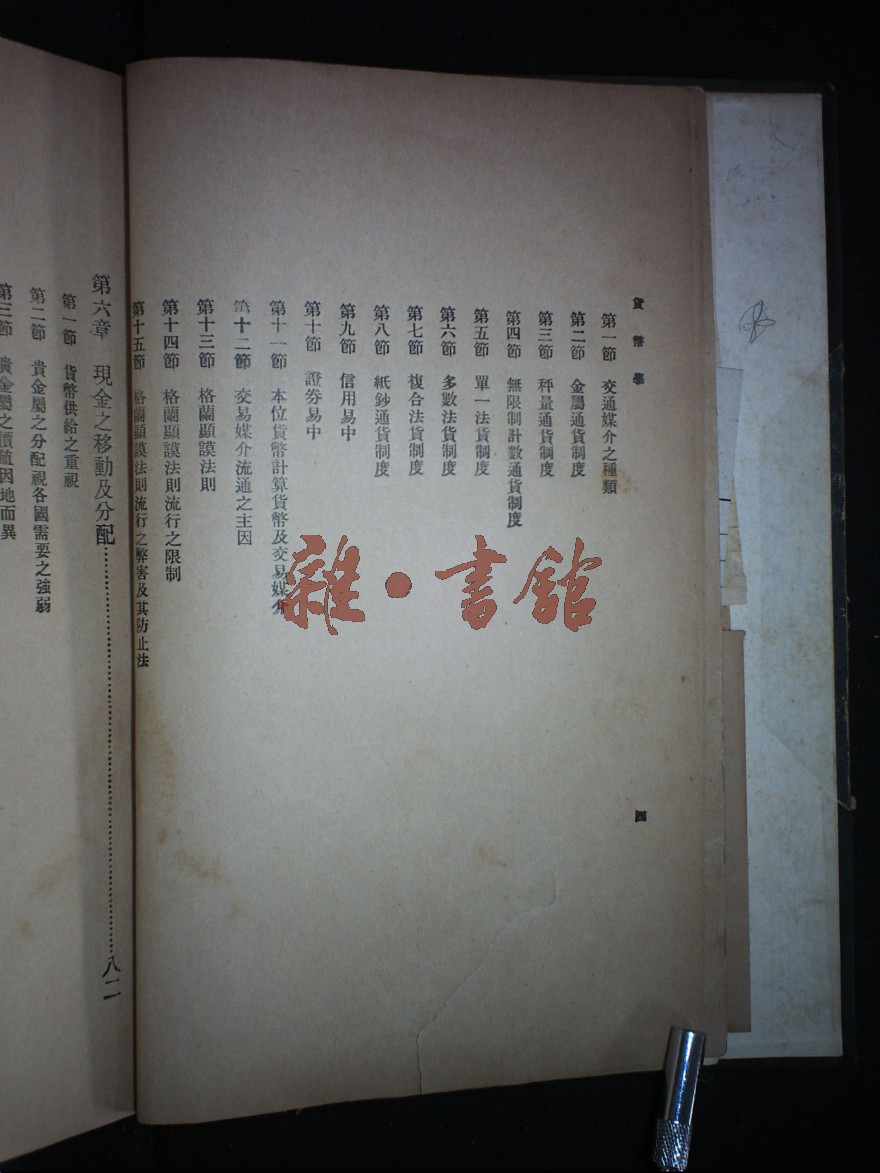 貨幣學
第一節 交通媒介之種類
第二節 金屬通貨制度
第三節 秤量通貨制度
第四節 無限制計數通貨制度
第五節 單一法貨制度
第六節 多數法貨制度
第七節 複合法貨制度
第八節 紙鈔通貨制度
第九節 信用易中
第十節 證券易中
第十一節 本位貨幣計算貨幣及交易媒介
第十二節 交易媒介流通之主因
第十三節 格蘭顯謨法則
第十四節 格蘭顯謨法則流行之限制
第十五節 格蘭顯謨法則流行之弊害及其防止法
四
第六章 現金之移動及分配……八二
第一節 貨幣供給之重視
第二節 貴金屬之分配視各國需要之強弱
第三節 貴金屬之價值因地而異
雜·書館